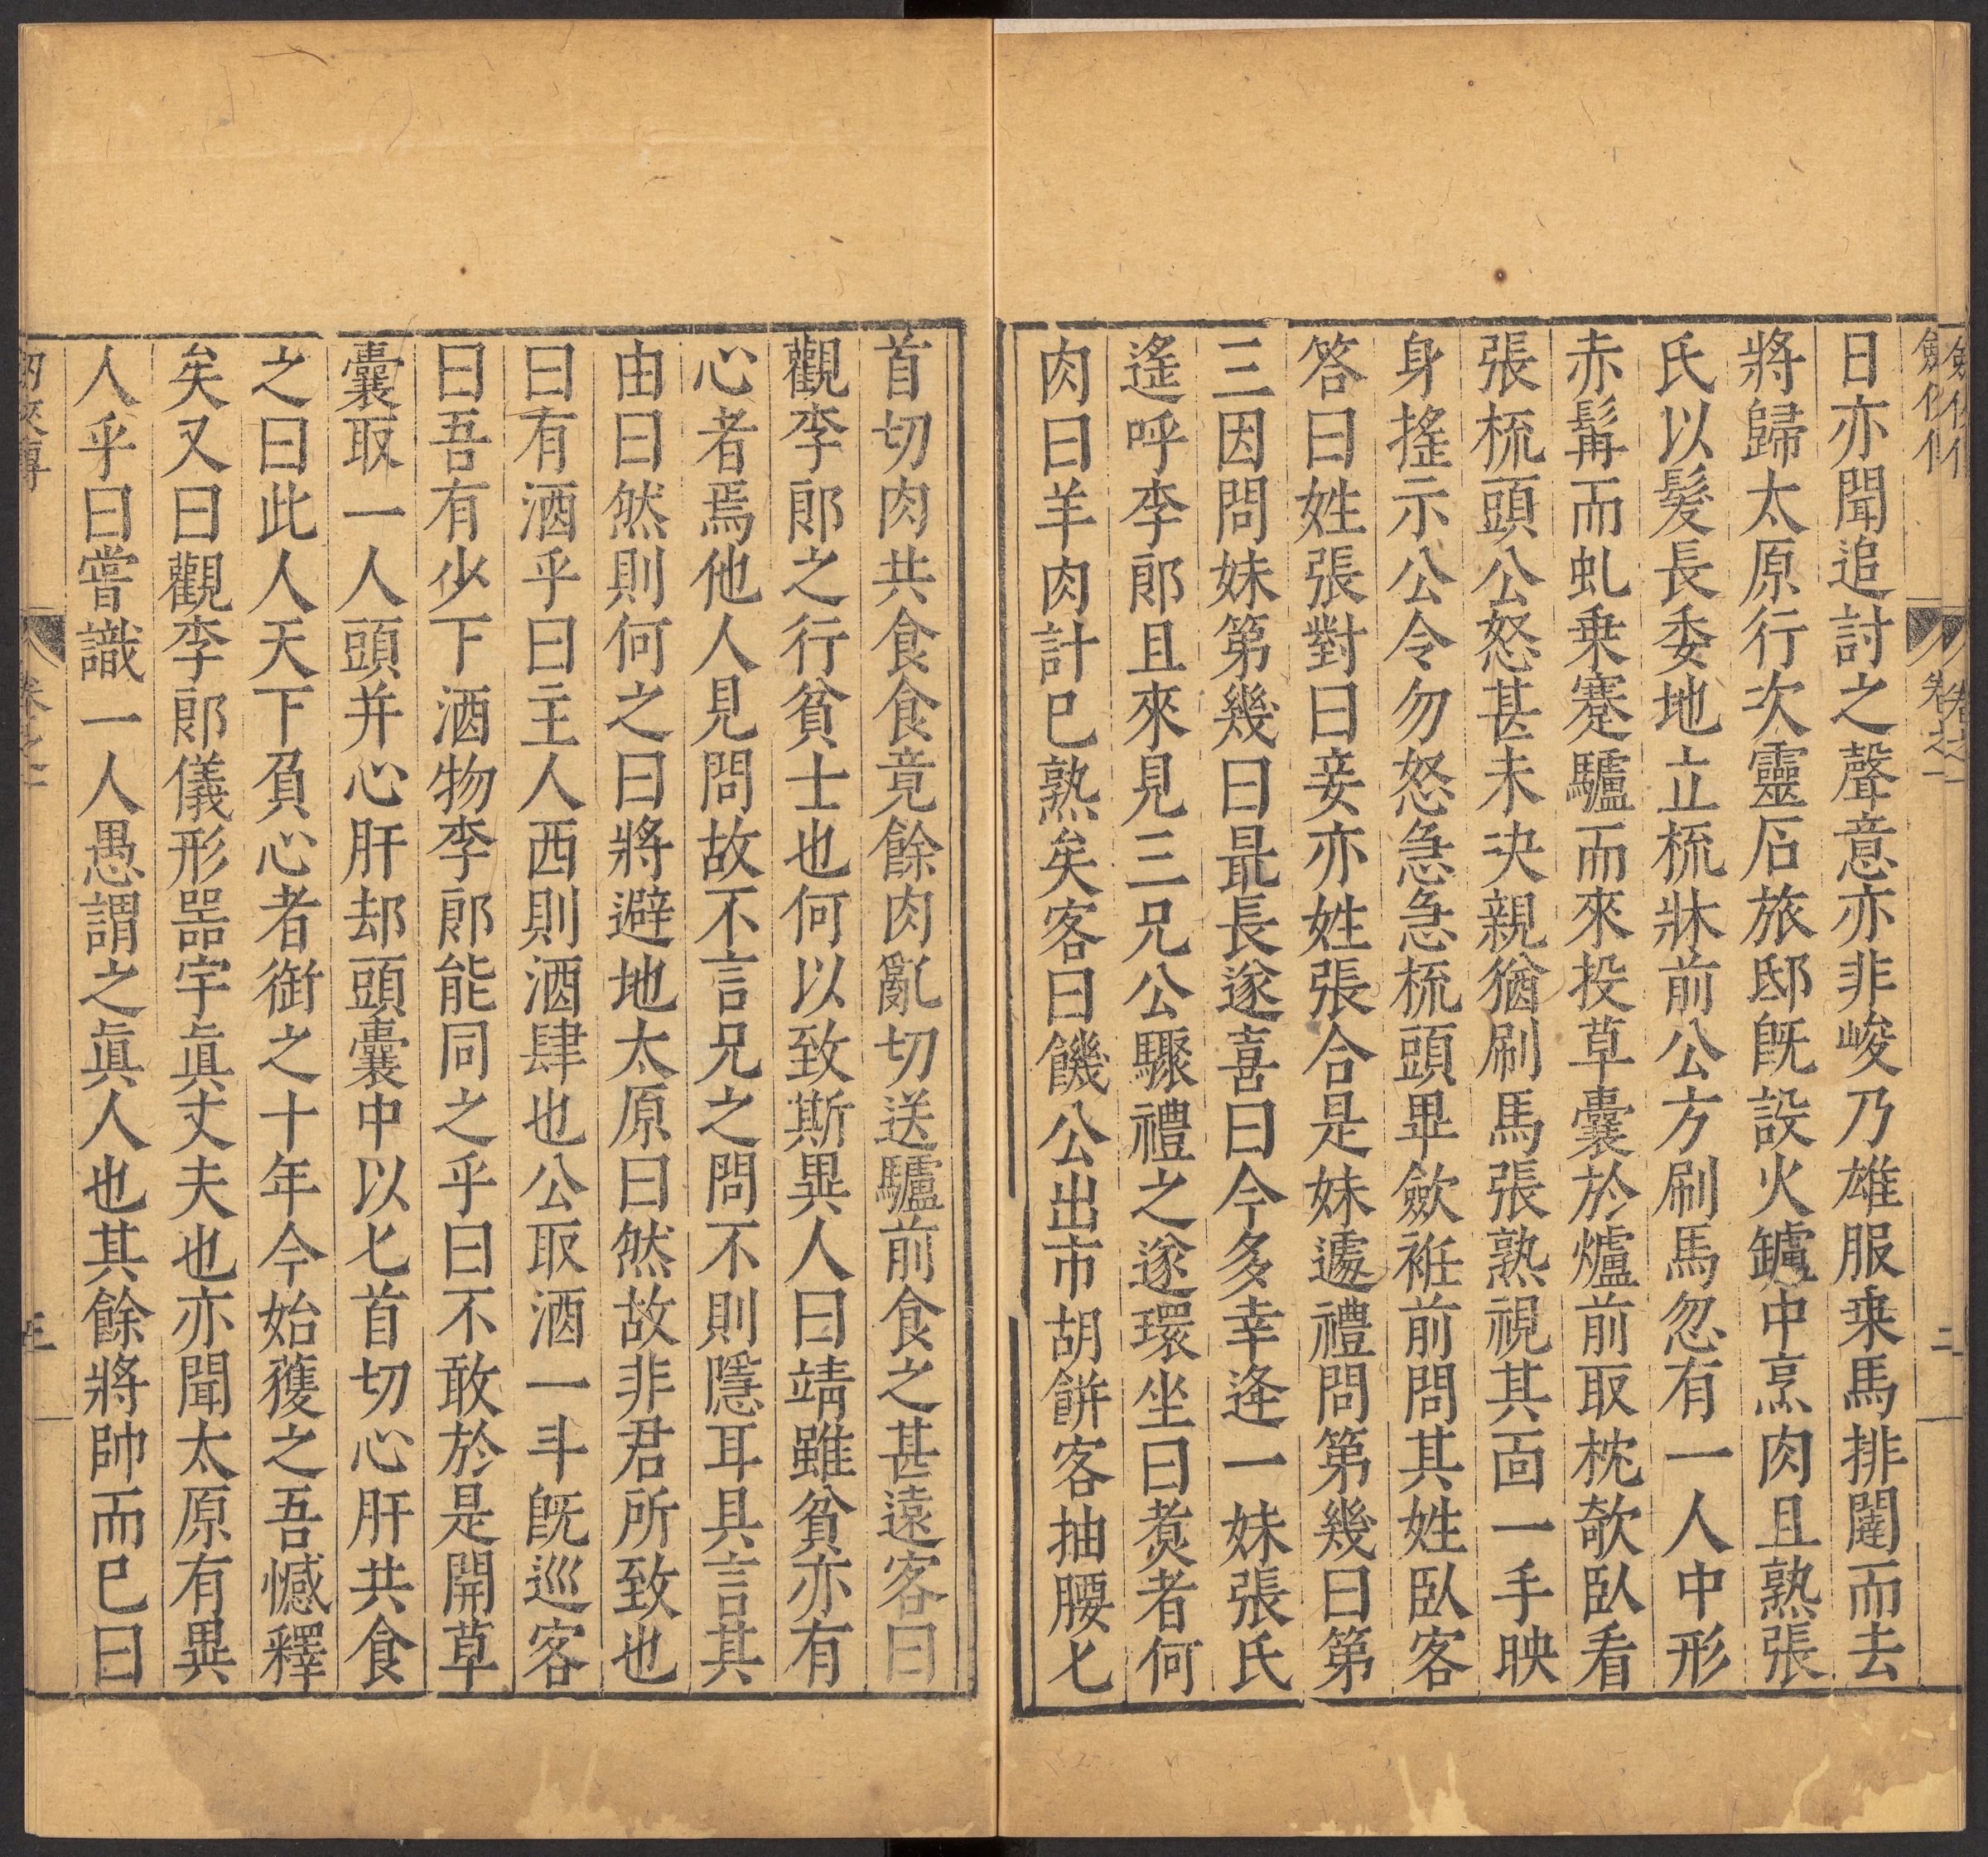 日亦聞追討之聲意亦非峻乃雄服乗馬排闥而去
將歸太原行次靈石旅邸旣設火鑪中烹肉且熟張
氏以髮長委地立梳牀前公方刷馬忽有一人中形
赤髯而虬乗蹇驢而來投草囊於爐前取枕欹臥看
張梳頭公怒甚未决親猶刷馬張熟視其面一手映
身搖示公令勿怒急急梳頭畢歛袵前問其姓臥客
答曰姓張對曰妾亦姓張合是妹遽禮問第幾曰第
三因問妹第幾曰最長遂喜曰今多幸逢一妹張氏
遙呼李郎且來見三兄公驟禮之遂環坐曰煑者何
肉曰羊肉計已熟矣客曰饑公出市胡餅客抽腰匕
首切肉共食食竟餘肉亂切送驢前食之甚遠客曰
觀李郎之行貧士也何以致斯異人曰靖雖貧亦有
心者焉他人見問故不言兄之問不則隱耳具言其
由曰然則何之曰將避地太原曰然故非君所致也
曰有酒乎曰主人西則酒肆也公取酒一斗旣巡客
曰吾有少下酒物李郎能同之乎曰不敢於是開草
囊取一人頭并心肝却頭囊中以匕首切心肝共食
之曰此人天下負心者銜之十年今始獲之吾憾釋
矣又曰觀李郎儀形噐宇眞丈夫也亦聞太原有異
人乎曰嘗識一人愚謂之眞人也其餘將帥而已曰